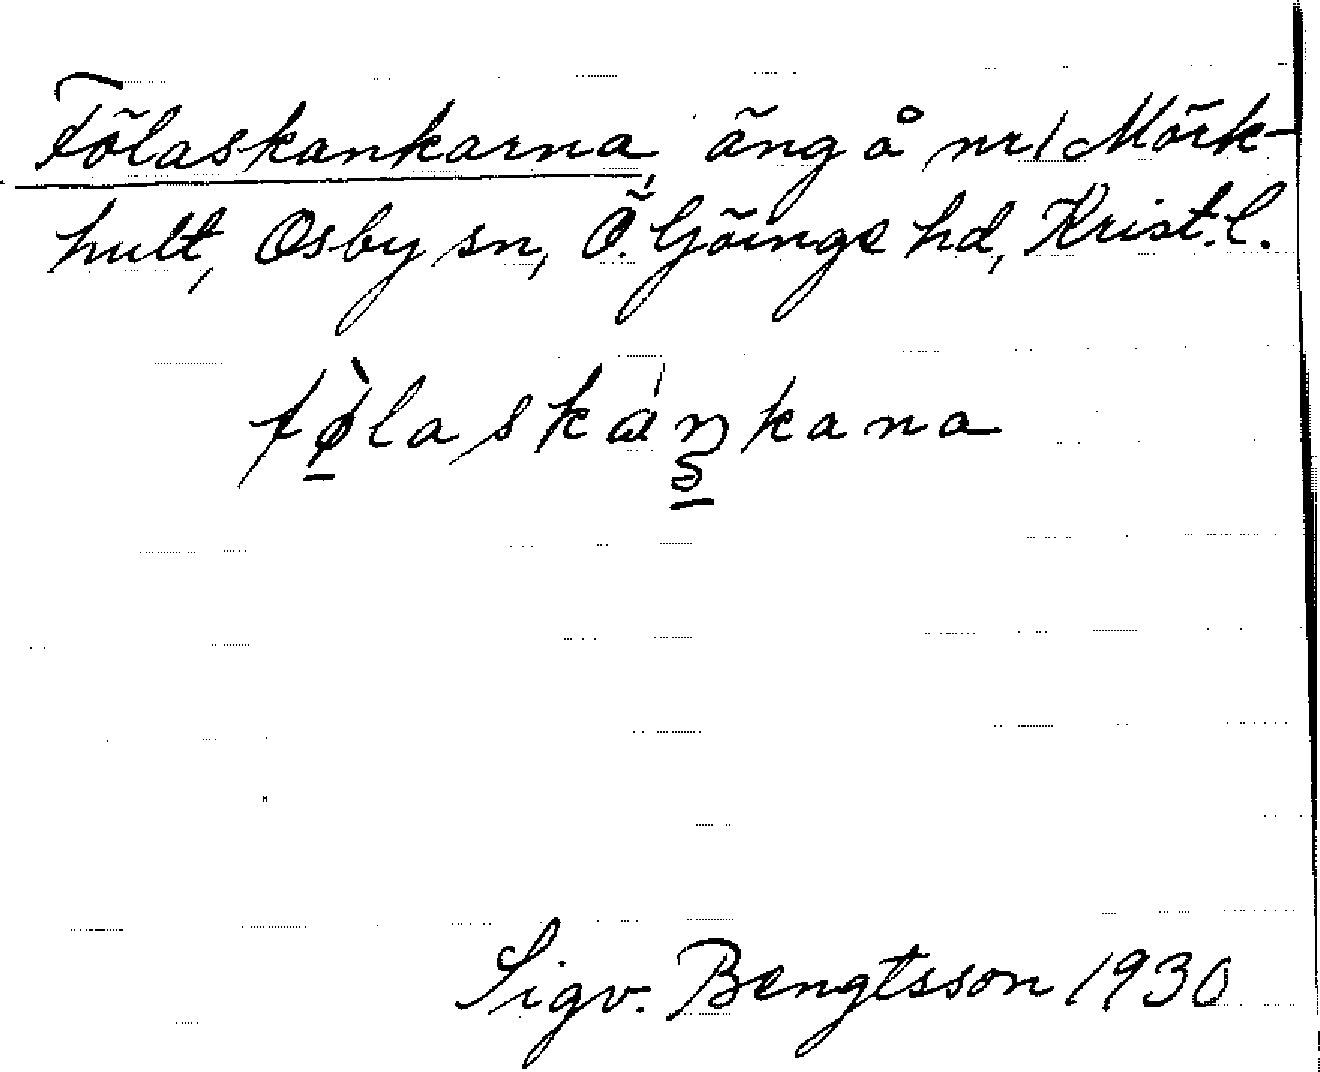 Fölaskankarna, äng å nr 1 Mörk-
hult, Osby sn, Ö. Göinge hd, Krist. l.
fø̀laskáŋkana
Sigv. Bengtsson 1930